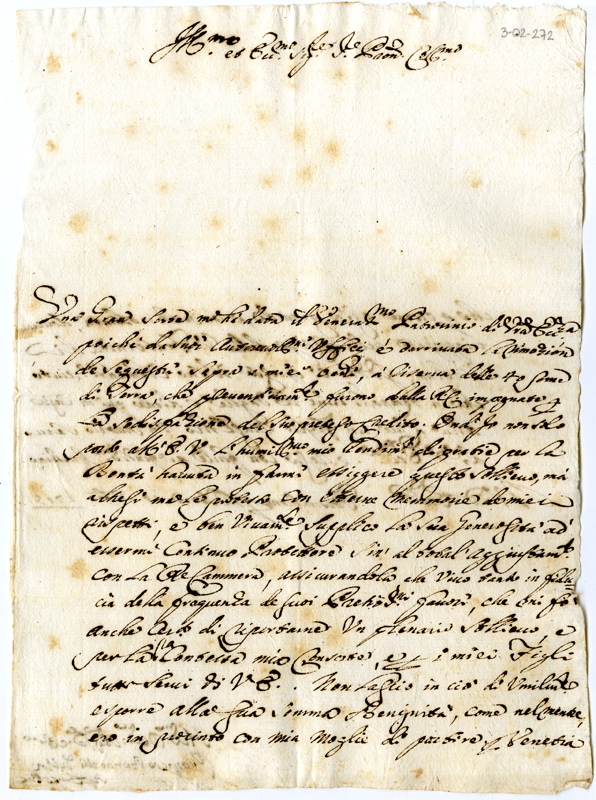 3-02-272
Ill.mo et Ecc.mo Sig.r Sig.r P.ron Col.mo
Una gran sorte m'hà data il Venerat.mo Patrocinio di Vra Ecc.za
poiche da suoi Autorevoli Uffici è derrivata la rimozion
de sequestri sopra i miei beni, à riserva delle 40 some
di furono dalla R.
sodisfazione del suo preteso credito. Ond'Io non solo
rendo all' E. V. l'humiliss.o mio di gratie per la
Bontà havuta in farmi essiggere questo sollievo, mà
altresi me le protesto con eterne memorie de miei
rispetti, e ben vivam.te supplico la sua Generosità ad
essermi Continuo Protettore sin' al total aggiustam.to
con la R.e Cammera, assicurandola che vivo tanto in fidu
cia della frequenza de suoi favori, che mi fò
anche certo di riportarne un plenario sollievo, e
per la Contessa mia Consorte, e i miei Figli
tutti servi di V. E. Non taglio in ciò di Umilm.te
esporre alla sua somma Benignità, come nel mentre
ero in procinto con mia Moglie di partire p Venetia